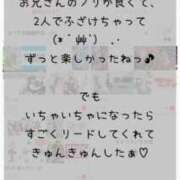 お兄さんのノリが良くて、
2人でふざけちゃって
(ｯ´艸`) ,.･
ずっと楽しかったねっ♪
でも
いちゃいちゃになったら
すごくリードしてくれて
きゅんきゅんしたぁ♡